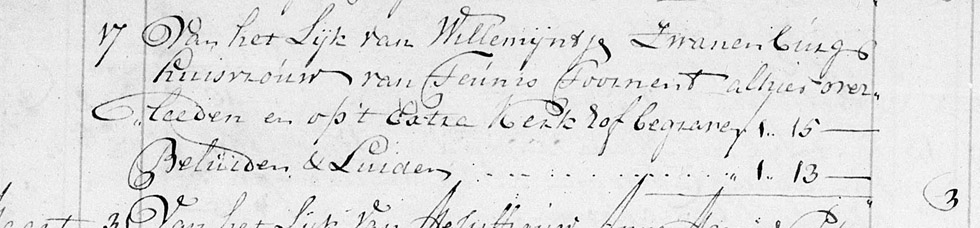 17 Van het Lijk van Willemijntje Zwanenburgs
huisvrouw van Teunis Toornent alhier over„
„leeden en op 't Extra Kerk hof begraven 1„ 15 —
Beluiden & Luiden . . . . . . . . „ 1„ 13 —
3
3 Van het Lijk van